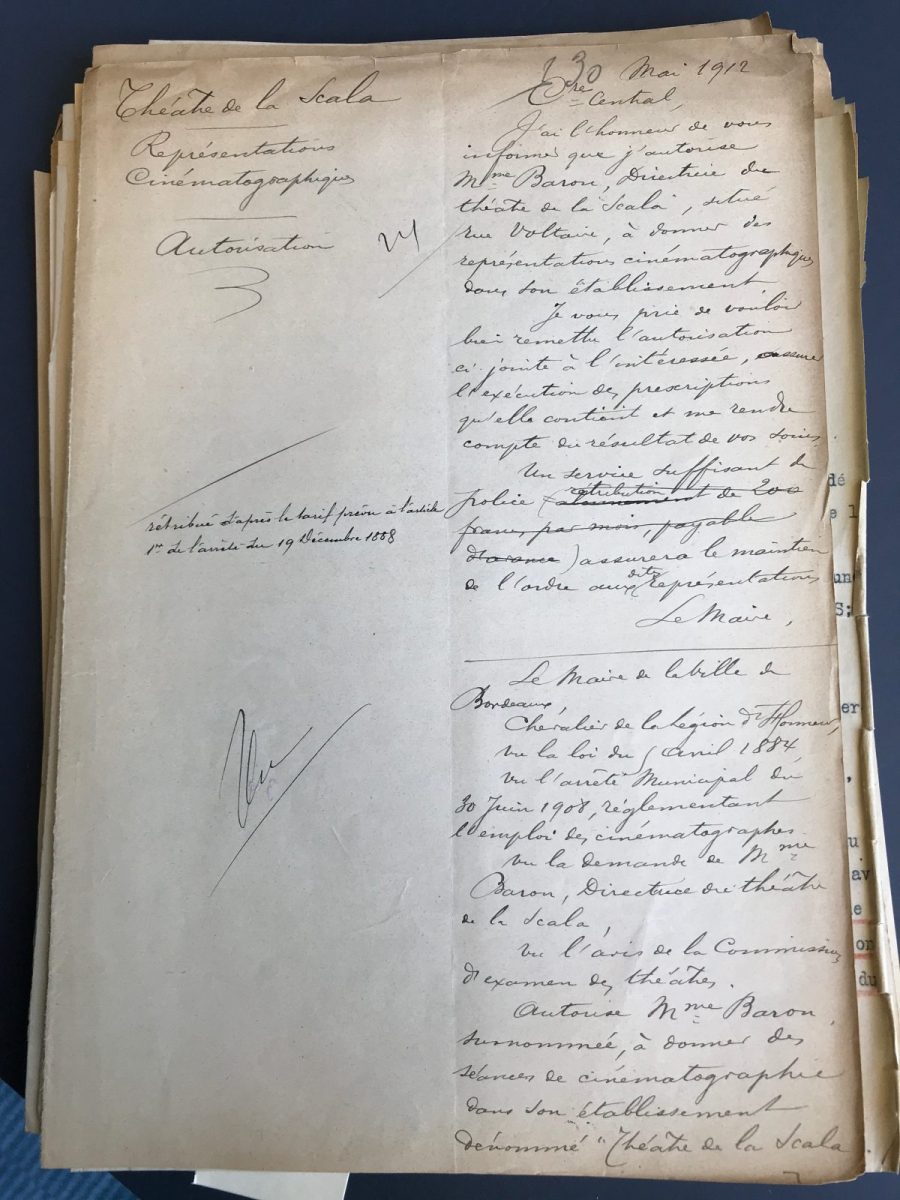 Théâtre de la Scala
Représentations
Cinématographiques
Autorisation
rétribué d'après le tarif prévu à l'article
1er de l'arrêté du 19 Décembre 1888
Vu
30 Mai 1912
Cre Central,
J'ai l'honneur de vous
informer que j'autorise
Mme Baron, Directrice du
théâtre de la Scala, situé
rue Voltaire, à donner des
représentations cinématographiques
dans son établissement.
Je vous prie de vouloir
bien remettre l'autorisation
ci jointe à l'intéressée, assurer
l'exécution des prescriptions
qu'elle contient et me rendre
compte du résultat de vos soins.
Un service suffisant de
police (rétribution de 200
francs, par mois, payable
d'avance) assurera le maintien
de l'ordre aux dites représentations
Le Maire,
Le Maire de la ville de
Bordeaux,
Chevalier de la Légion d'Honneur,
vu la loi du 5 Avril 1884
vu l'arrêté Municipal du
30 Juin 1908, réglementant
l'emploi des cinématographes.
vu la demande de Mme
Baron, Directrice du théâtre
de la Scala,
vu l'avis de la Commission
d'examen des théâtres.
Autorise Mme Baron,
surnommée, à donner des
séances de cinématographie
dans son établissement
dénommé "Théâtre de la Scala
dé
un
S;
er
,
u
av
on
du